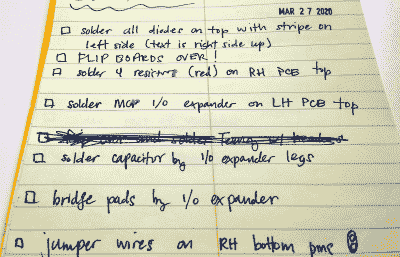 MAR 27 2020
□ solder all diodes on top with stripe on
left side (text is right side up)
□ FLIP BOARDS OVER!
□ solder 4 resistors (red) on RH PCB top
□ solder MCP I/O expander on LH PCB top
□ solder capacitor by I/O expander legs
□ bridge pads by I/O expander
□ jumper wires on RH bottom pins